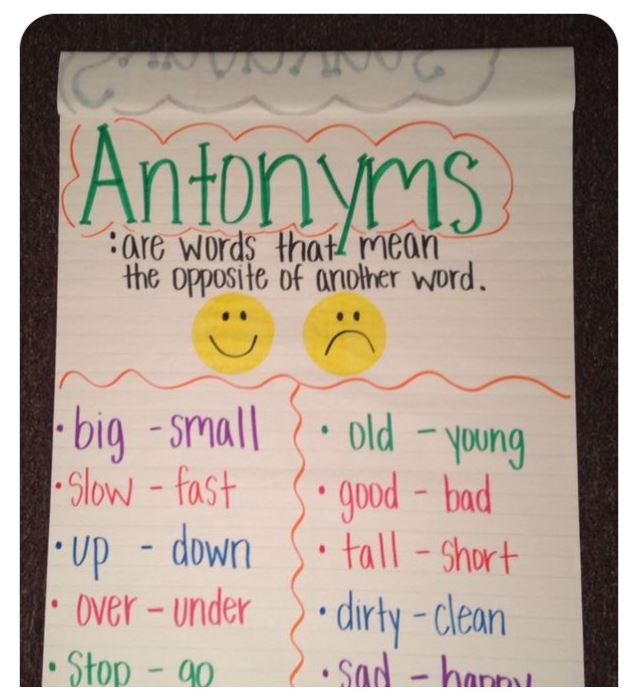 Antonyms
:are words that mean
the opposite of another word.
• big - small
• slow - fast
• up - down
• over - under
• stop - go
• old - young
• good - bad
• tall - short
• dirty - clean
• sad - happy